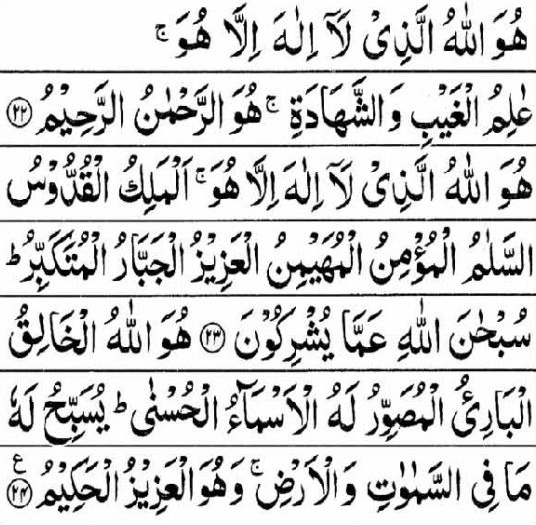 هُوَ اللّٰهُ الَّذِىْ لَآ اِلٰهَ اِلَّا هُوَ ۚ
عٰلِمُ الْغَيْبِ وَالشَّهَادَةِ ۚ هُوَ الرَّحْمٰنُ الرَّحِيْمُ ﴿۲۲﴾
هُوَ اللّٰهُ الَّذِىْ لَآ اِلٰهَ اِلَّا هُوَ ۚ اَلْمَلِكُ الْقُدُّوْسُ
السَّلٰمُ الْمُؤْمِنُ الْمُهَيْمِنُ الْعَزِيْزُ الْجَبَّارُ الْمُتَكَبِّرُ ؕ
سُبْحٰنَ اللّٰهِ عَمَّا يُشْرِكُوْنَ ﴿۲۳﴾ هُوَ اللّٰهُ الْخَالِقُ
الْبَارِئُ الْمُصَوِّرُ لَهُ الْاَسْمَآءُ الْحُسْنٰى ؕ يُسَبِّحُ لَهٗ
مَا فِى السَّمٰوٰتِ وَالْاَرْضِ ۚ وَهُوَ الْعَزِيْزُ الْحَكِيْمُ ﴿۲۴﴾ ع